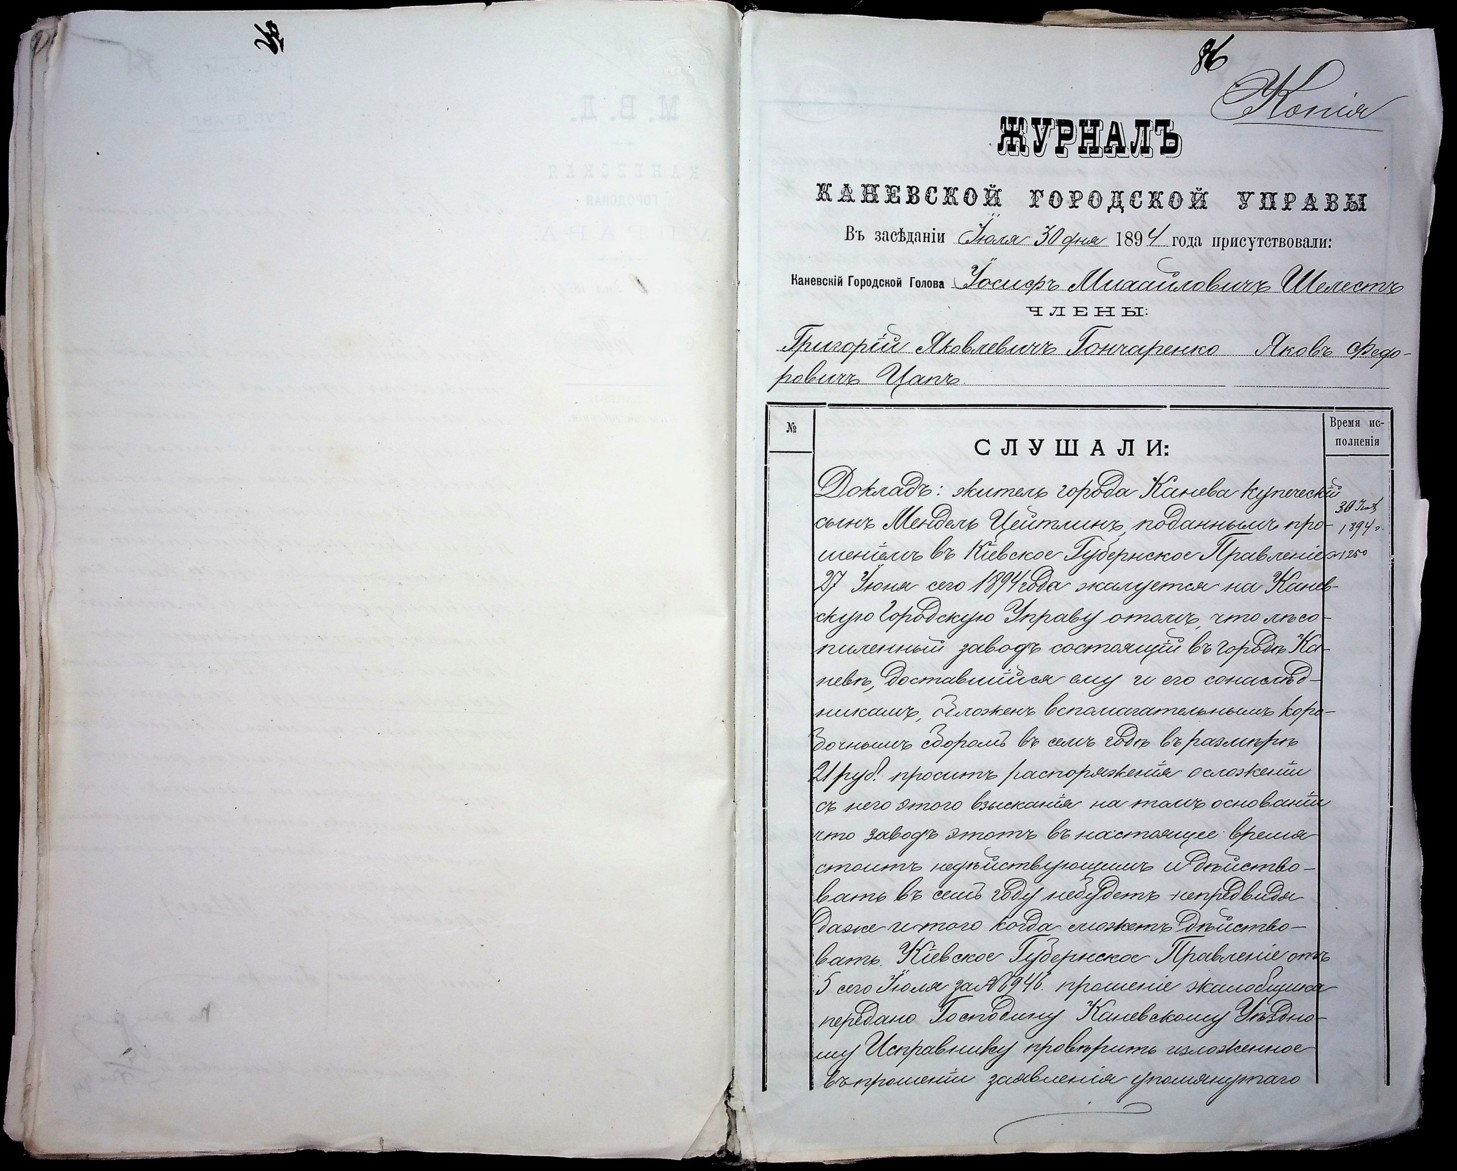 86
Копія
ЖУРНАЛЪ
КАНЕВСКОЙ ГОРОДСКОЙ УПРАВЫ
Въ засѣданіи Іюля 30 дня 1894 года присутствовали:
Каневскій Городской Голова Іосифъ Михайловичъ Шелестъ
ЧЛЕНЫ:
Григорій Яковлевичъ Гончаренко Яковъ Федо-
ровичъ Цапъ
№
СЛУШАЛИ:
Время ис-
полненія
30 Іюля
1894 г.
№ 1250
Докладъ: житель города Канева купеческій
сынъ Мендель Цейтлинъ, поданнымъ про-
шеніемъ въ Кіевское Губернское Правленіе
27 Іюня сего 1894 года жалуется на Канев-
скую Городскую Управу отомъ, что лѣсо-
пиленный заводъ состоящій въ городѣ Ка-
невѣ, доставшійся ему и его сонаслѣд-
никамъ, обложенъ вспомагательнымъ коро-
бочнымъ сборомъ въ семъ годѣ въ размѣрѣ
21 руб. проситъ распоряженія осложеніи
съ него этого взысканія на томъ основаніи
что заводъ этотъ въ настоящее время
стоитъ недѣйствующимъ и дѣйство-
вать въ семъ году небудетъ непредвидя
даже и того когда можетъ дѣйство-
вать. Кіевское Губернское Правленіе отъ
5 сего Іюля за № 6946 прошеніе жалобщика
передано Господину Каневскому Уѣздно-
му Исправнику провѣрить изложенное
въ прошеніи заявленія упомянутаго